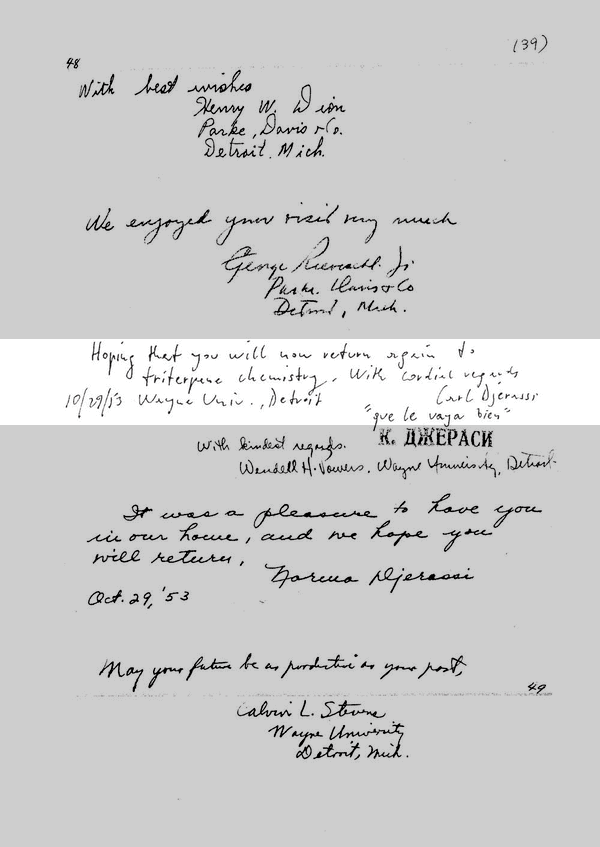 (39)
48
With best wishes
Henry W. Dion
Parke, Davis & Co.
Detroit. Mich.
We enjoyed your visit very much
George Rieveschl. Jr
Parke. Davis & Co
Detroit, Mich.
Hoping that you will now return again to
triterpene chemistry. With cordial regards
10/29/53 Wayne Univ., Detroit Carl Djerassi
"que le vaya bien"
К. ДЖЕРАСИ
With kindest regards.
Wendell H. Powers. Wayne University, Detroit
It was a pleasure to have you
in our home, and we hope you
will return,
Norma Djerassi
Oct. 29, '53
May your future be as productive as your past,
49
Calvin L. Stevens
Wayne University
Detroit, Mich.